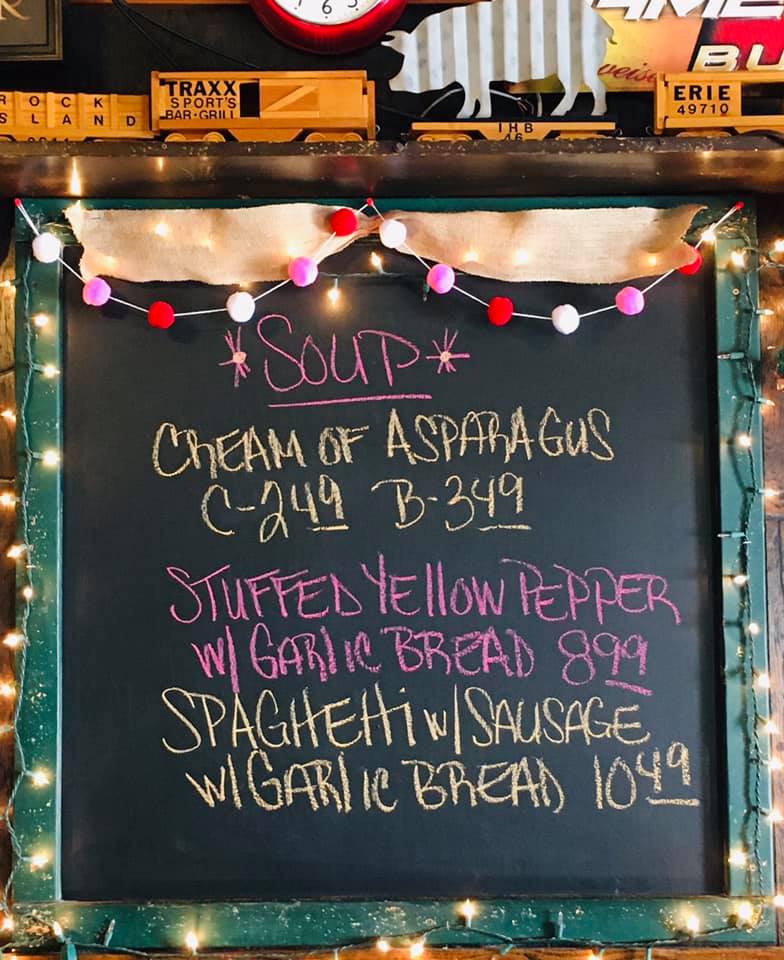 6 5
4ME
BU
weise
TRAXX
SPORT'S
BAR·GRILL
ROCK
SLAND
IHB
46
ERIE
49710
*SOUP*
CREAM OF ASPARAGUS
C-2 49 B-3 49
STUFFED YELLOW PEPPER
W/ GARLIC BREAD 8 99
SPAGHETTI W/ SAUSAGE
W/ GARLIC BREAD 10 49